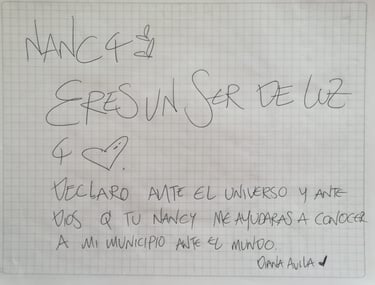 NANCY
ERES UN SER DE LUZ
Y
DECLARO ANTE EL UNIVERSO Y ANTE
DIOS Q TU NANCY ME AYUDARAS A CONOCER
A MI MUNICIPIO ANTE EL MUNDO.
DIANA AVILA